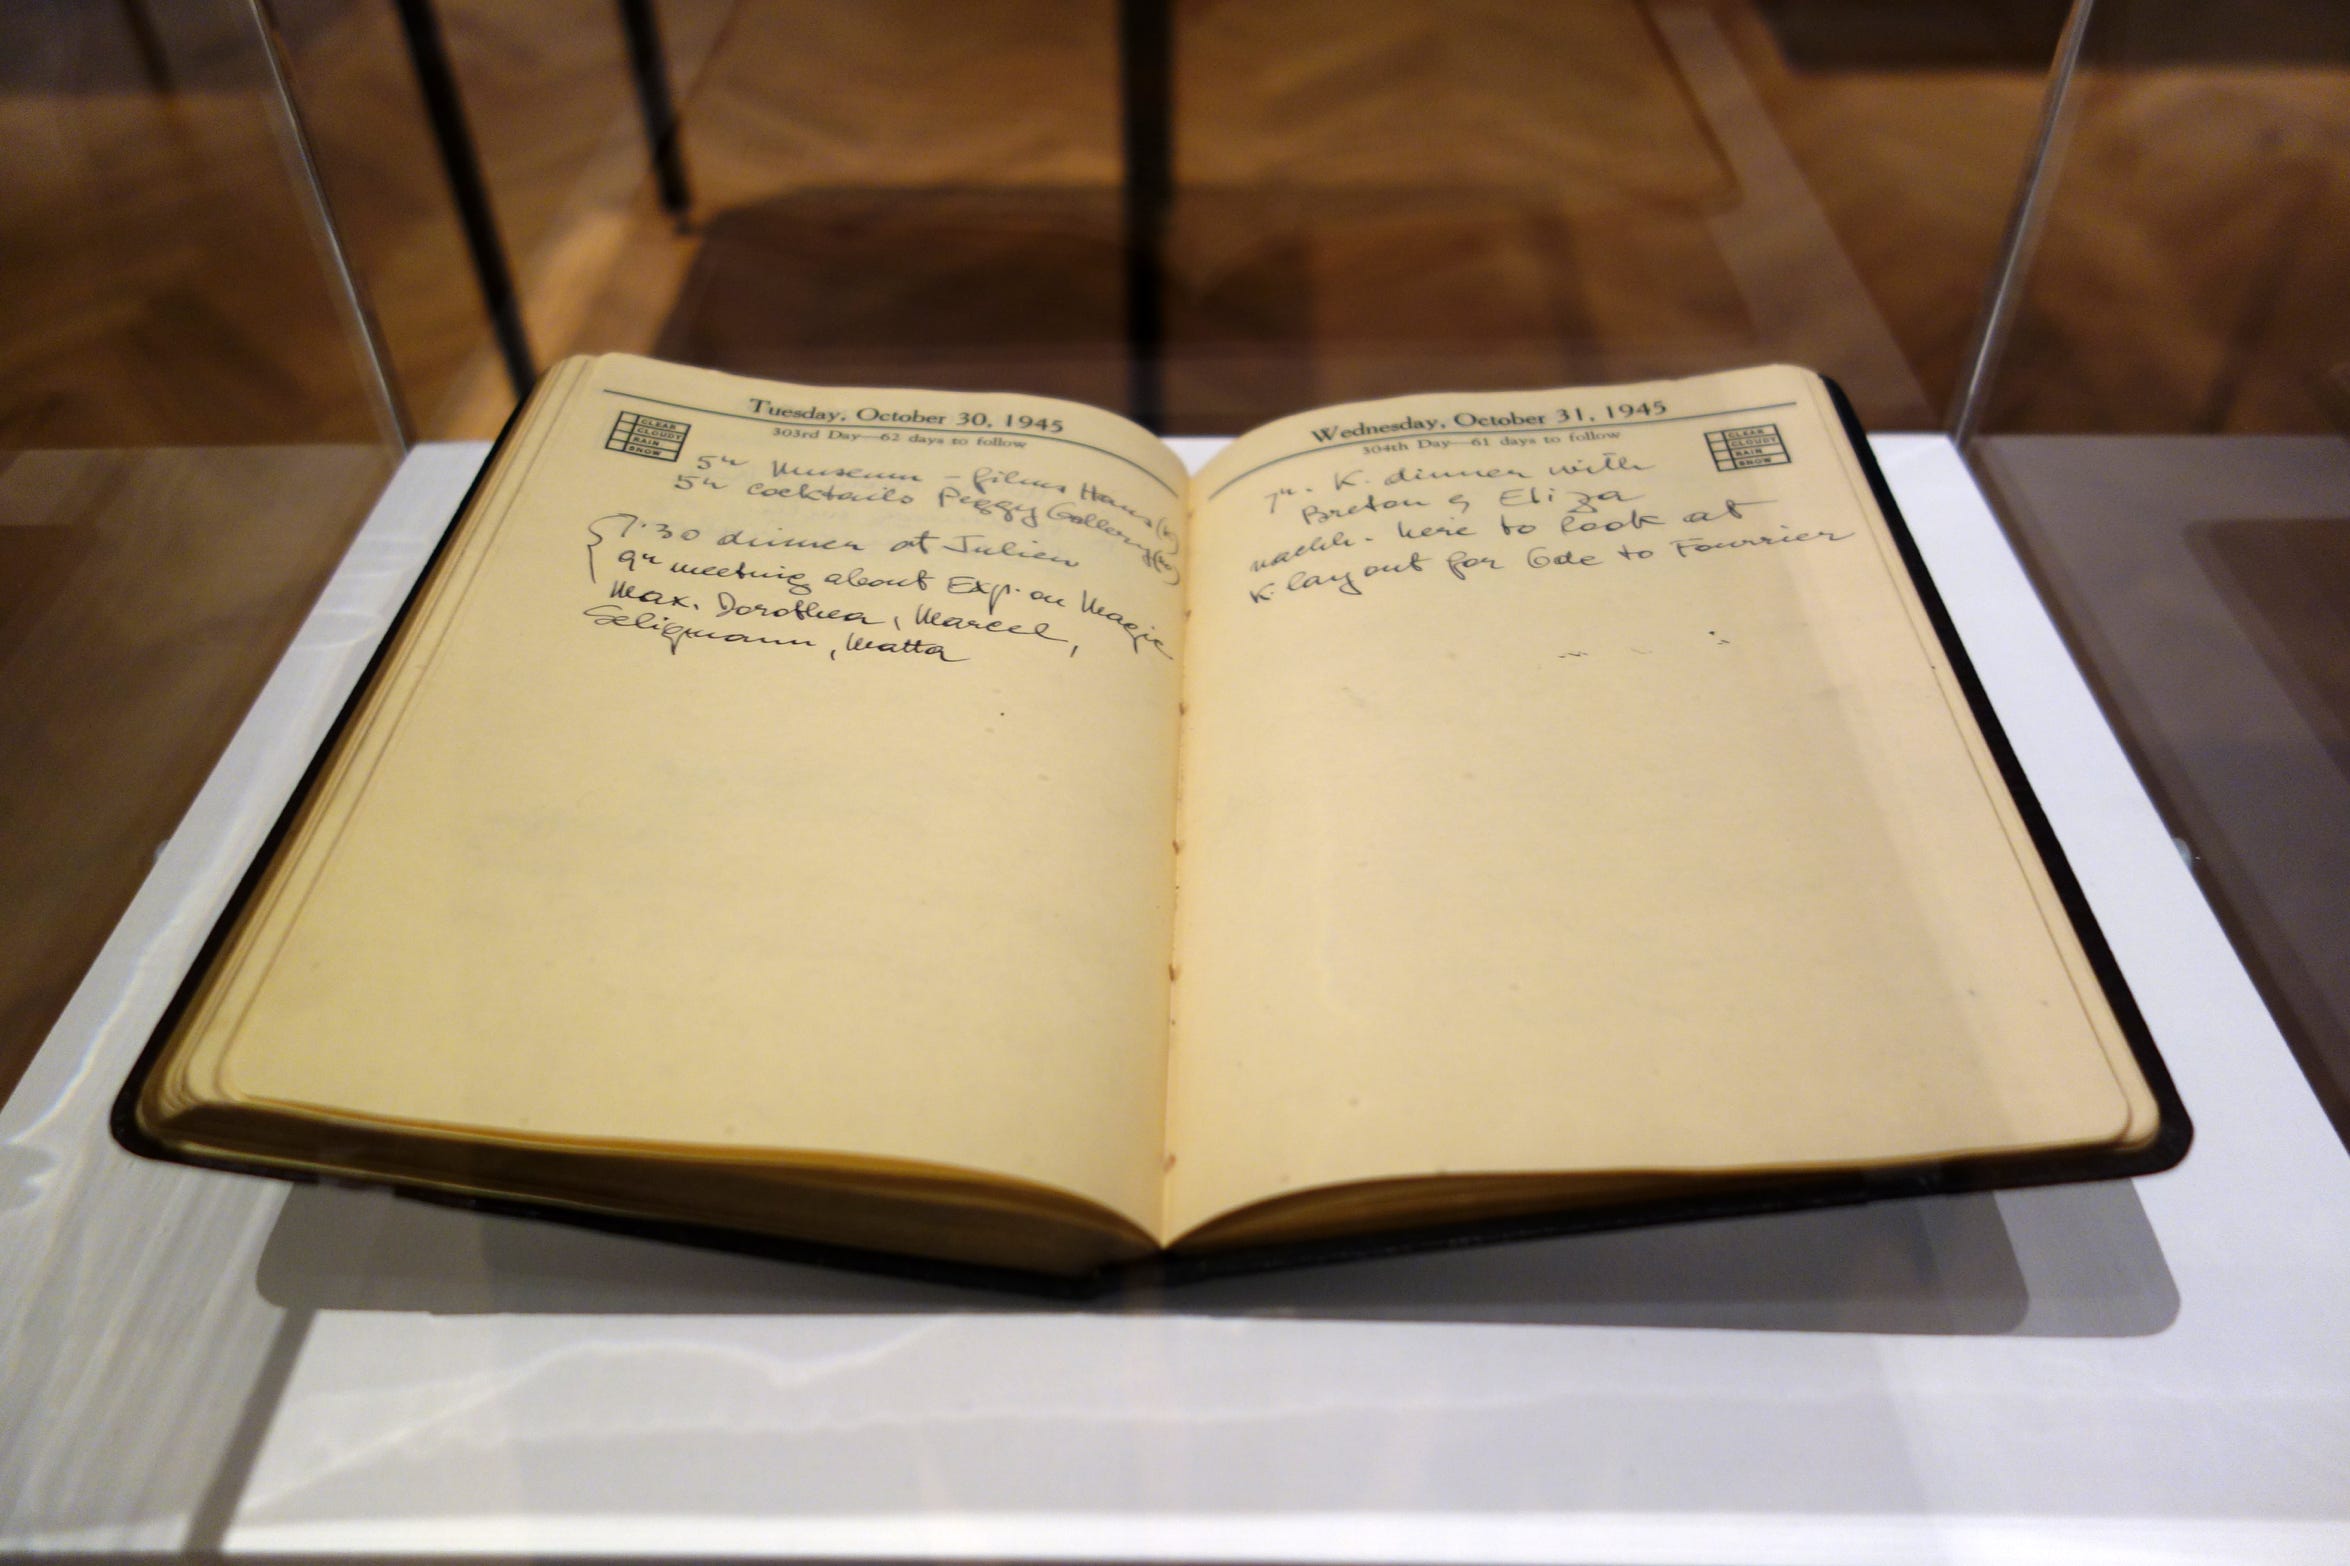 Tuesday, October 30, 1945
303rd Day—62 days to follow
CLEAR
CLOUDY
RAIN
SNOW
5ʰ Museum - films Hans (K)
5ʰ cocktails Peggy Gallery
7.30 dinner at Julien
9ʰ meeting about Exp. on Magic
Max, Dorothea, Marcel,
Seligmann, Matta
Wednesday, October 31, 1945
304th Day—61 days to follow
CLEAR
CLOUDY
RAIN
SNOW
7ʰ. K. dinner with
Breton & Eliza
nachh. here to look at
K. layout for Ode to Fourrier